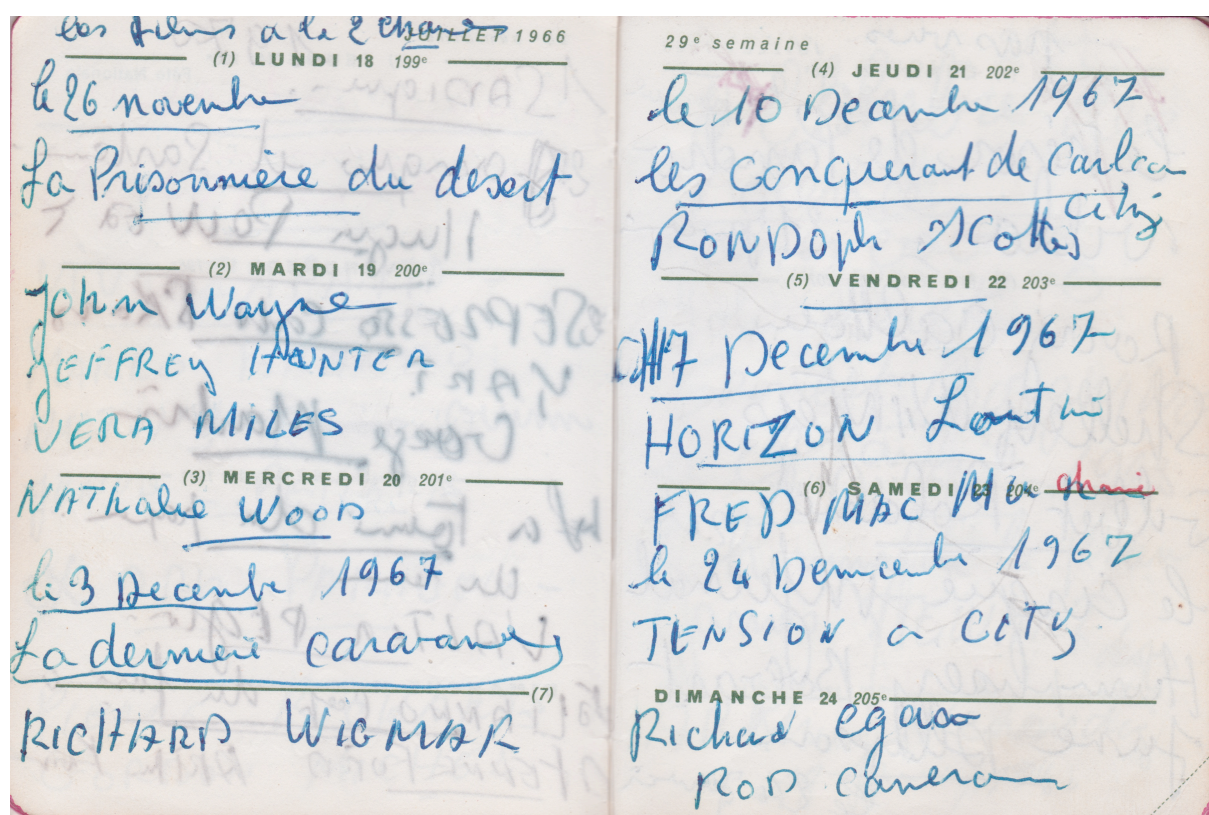 les films a la 2 chaine
JUILLET 1966
(1) LUNDI 18 199e
le 26 novembre
La Prisonnière du desert
(2) MARDI 19 200e
John Wayne
JEFFREY HUNTER
VERA MILES
(3) MERCREDI 20 201e
NAThalie WOOD
le 3 Decembre 1967
La derniere caravane
(7)
RICHARD WIGMAR
29e semaine
(4) JEUDI 21 202e
le 10 Decembre 1967
les conquerant de Carlson
City
RONDOPh SCOTT
(5) VENDREDI 22 203e
17 Decembre 1967
HORIZON Lointain
(6) SAMEDI 23 204e
FRED MAC Mu
le 24 Demcembre 1967
TENSION a CITY
DIMANCHE 24 205e
Richard egan
ROD Cameron